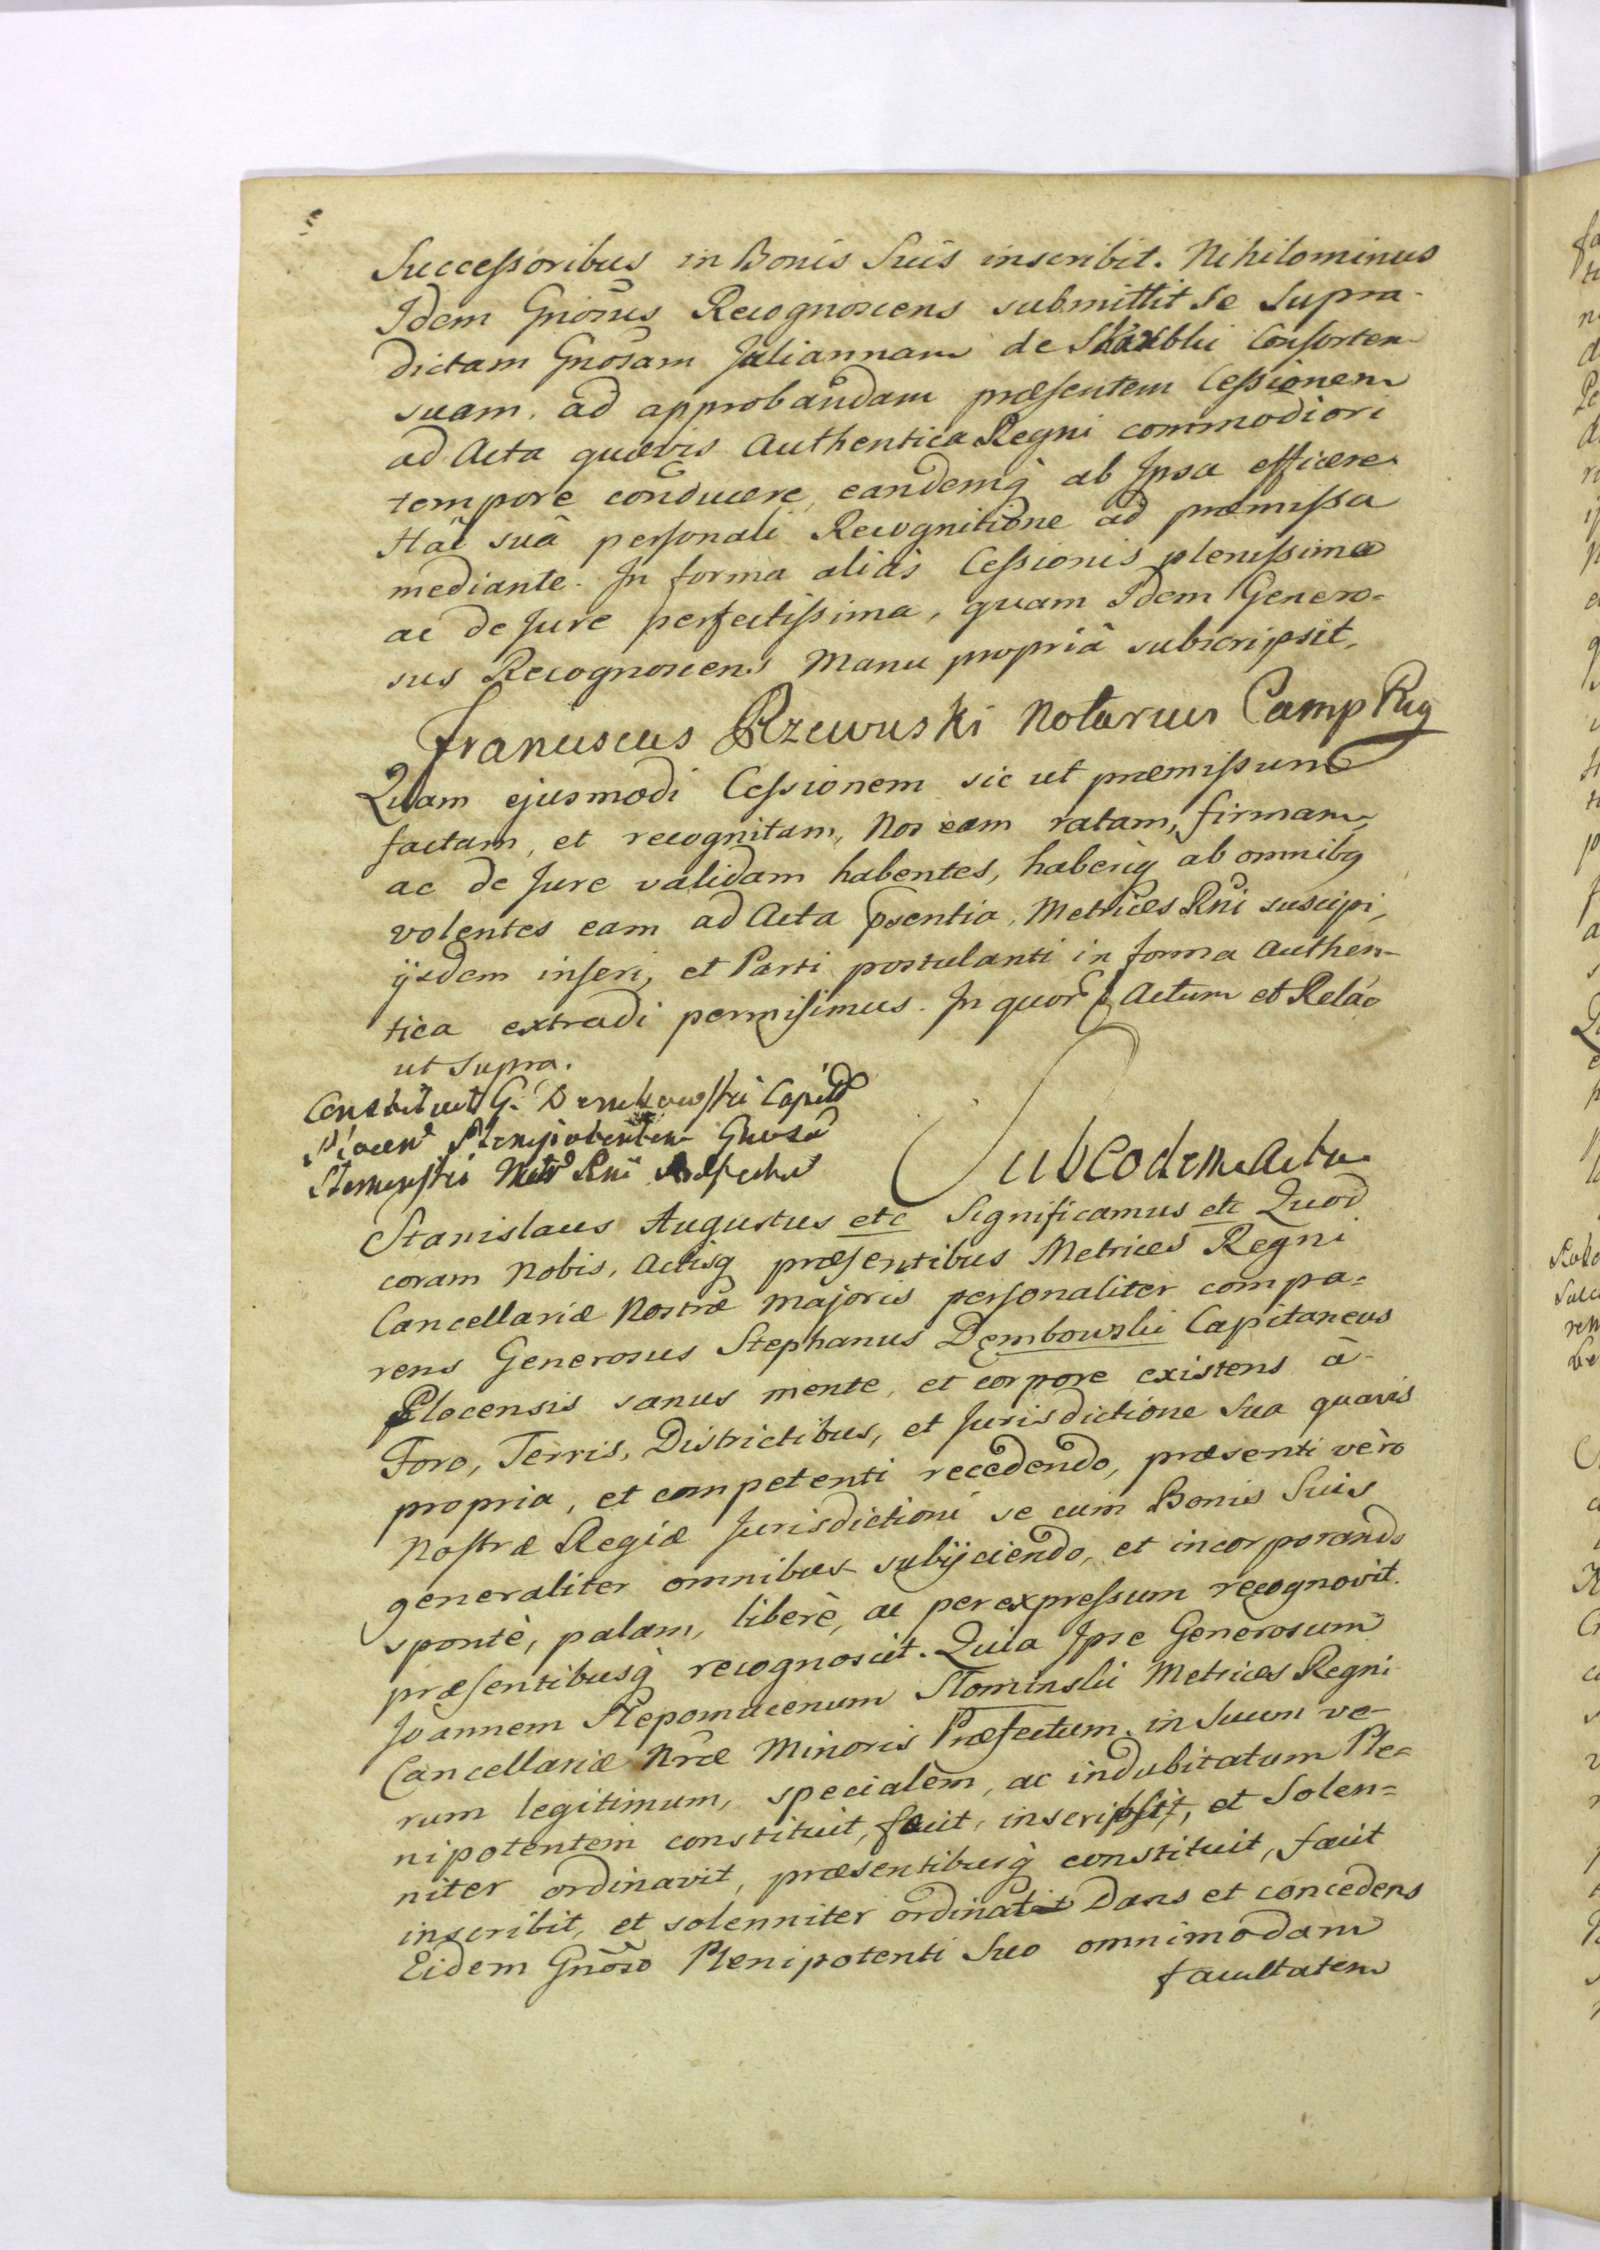 Successoribus in Bonis Suis inscribit. Nihilominus
Idem Gnosus Recognoscens submittit Se Supra-
dictam Gnosam Juliannam de Consortem
suam, ad approbandam præsentem Cessionem
ad Acta quævis Authentica Regni commodiori
tempore conducere, eandemq ab Ipsa efficere
Hac suâ personali Recognitione ad præmissa
mediante. In forma aliàs Cessionis plenissima
ac de Jure perfectissima, quam Idem Genero=
sus Recognoscens Manu propriâ subscripsit.
Franciscus Rzewuski Notarius Camp Reg
Quam ejusmodi Cessionem sic ut præmissum
factam, et recognitam, Nos eam ratam, firmam,
ac de Jure validam habentes, haberiq ab omnibq
volentes eam ad Acta psentia Metrices Rni suscipi,
ijsdem inseri, et Parti postulanti in forma Authen-
tica extradi permisimus. In quor Actum et Relao
ut Supra.
Constituit G. Dembowski Capit
Plocen Plenipotentem Gnosū
Słominski Metr Rni Præfectū
Sub Eodem Actu
Stanislaus Augustus etc Significamus etc Quod
coram Nobis, Actisq præsentibus Metrices Regni
Cancellariæ Nostræ Majoris personaliter compa=
rens Generosus Stephanus Dembowski Capitaneus
Plocensis sanus mente, et corpore existens à
Foro, Terris, Districtibus, et Jurisdictione Sua quavis
propria, et competenti recedendo, præsenti verò
Nostræ Regiæ Jurisdictioni se cum Bonis Suis
generaliter omnibus subijciendo, et incorporando
spontè, palam, liberè, ac per expressum recognovit.
præsentibusq recognoscit. Quia Ipse Generosum
Joannem Nepomucenum Słominski Metrices Regni
Cancellariæ Nræ Minoris Præfectum, in Suum ve-
rum legitimum, specialem, ac indubitatum Ple=
nipotentem constituit, fecit, inscripsit, et Solen=
niter ordinavit, præsentibusq constituit, facit
inscribit, et solenniter ordinat Dans et concedens
Eidem Gnoso Plenipotenti Suo omnimodam
facultatem